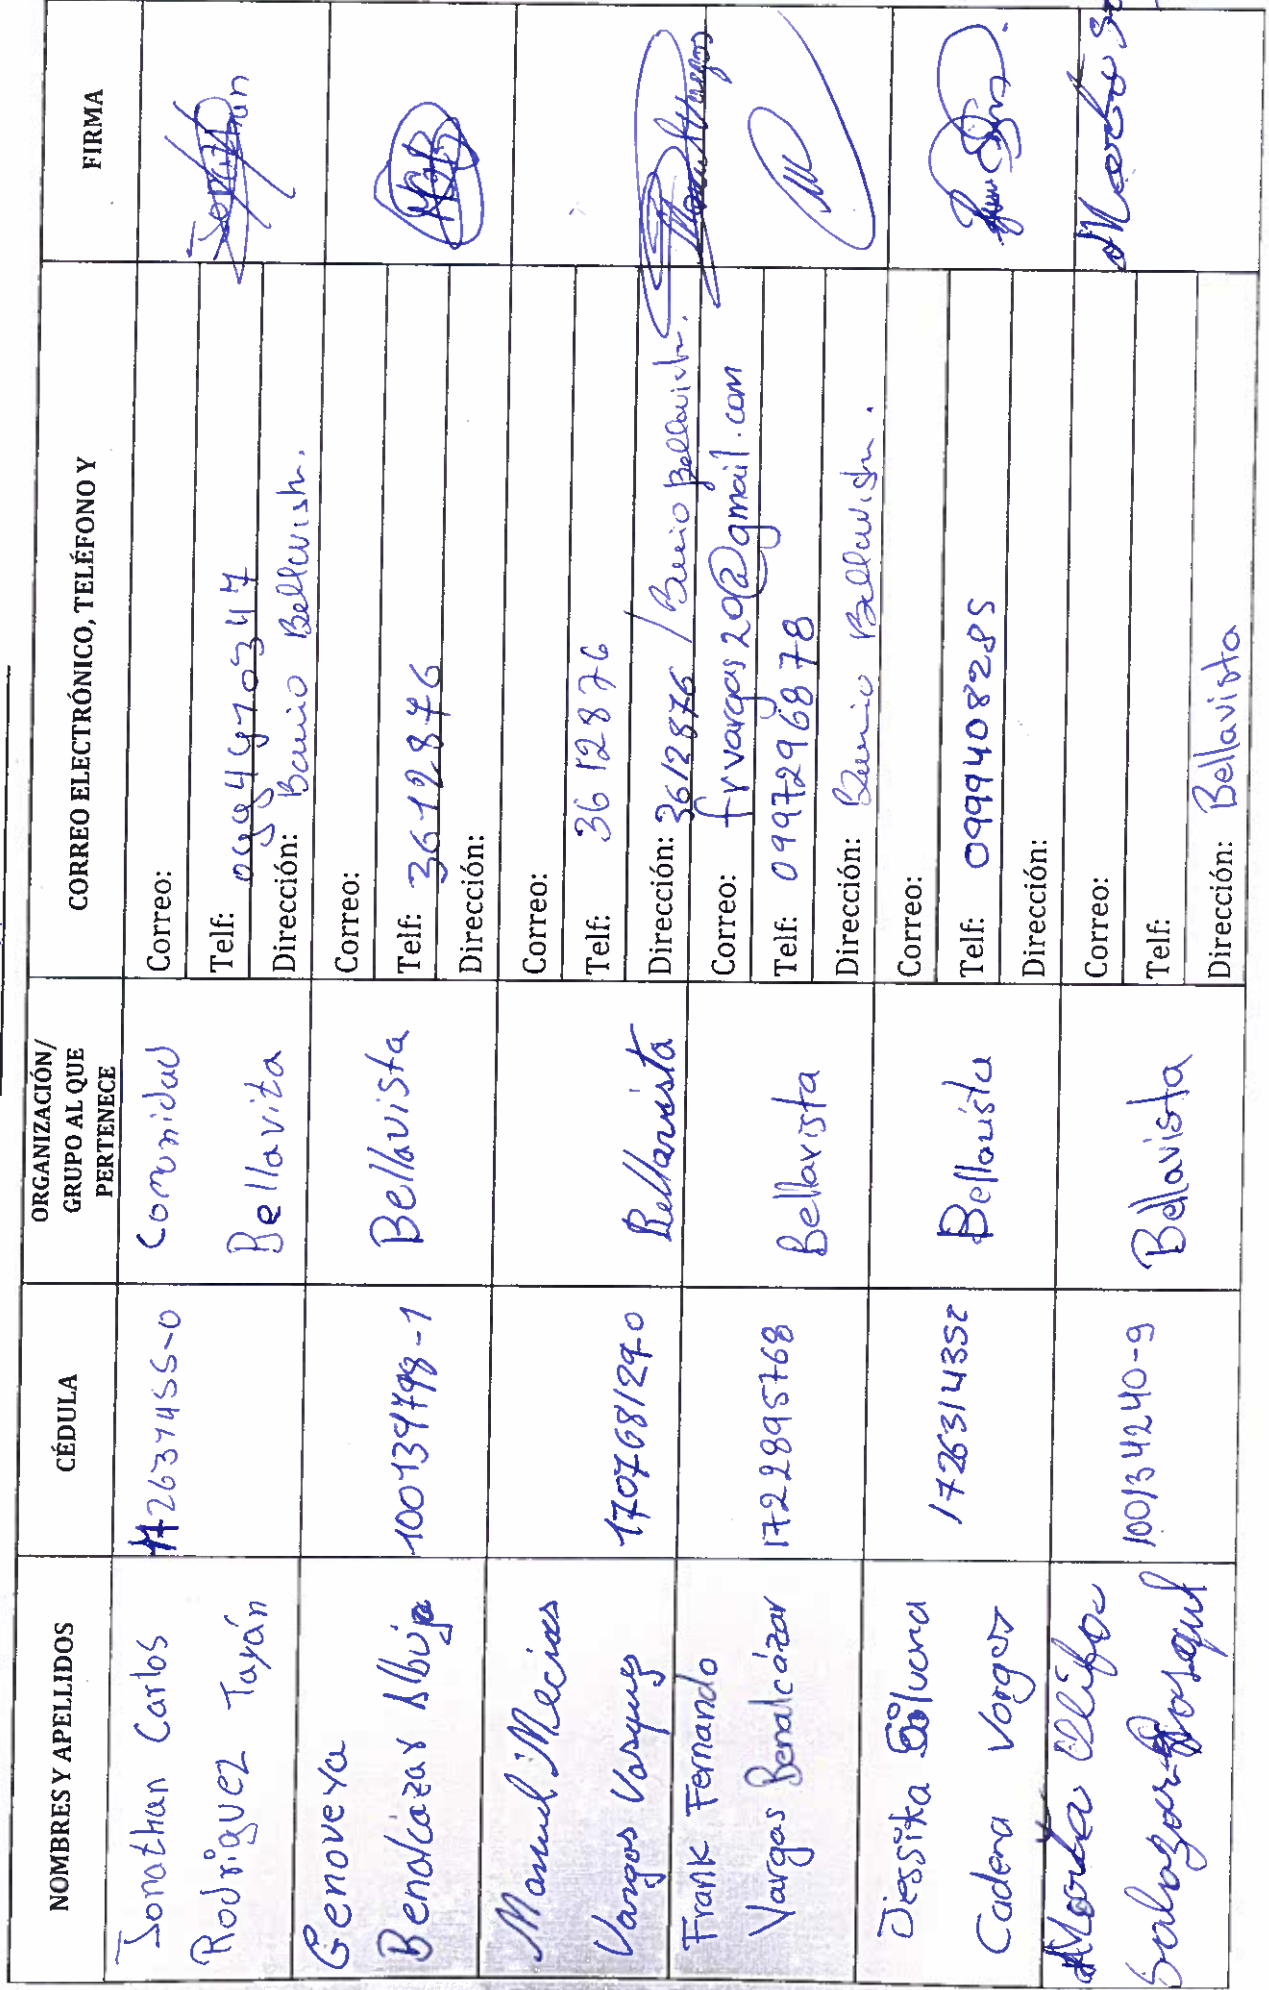 NOMBRES Y APELLIDOS
CÉDULA
ORGANIZACIÓN/
GRUPO AL QUE
PERTENECE
CORREO ELECTRÓNICO, TELÉFONO Y
FIRMA
Jonathan Carlos
Rodriguez Tayán
172637455-0
Comunidad
Bellavita
Correo:
Telf: 0994970347
Dirección: Barrio Bellavista.
Jonathan
Genoveva
Benalcázar Albuja
100139798-1
Bellavista
Correo:
Telf: 3612876
Dirección:
Manuel Mecias
Vargas Vasquez
170768129-0
Bellavista
Correo:
Telf: 3612876
Dirección: 3612876 / Barrio Bellavista.
Frank Fernando
Vargas Benalcázar
1722895768
Bellavista
Correo: frvargas29@gmail.com
Telf: 0997296878
Dirección: Barrio Bellavista.
Jessika Silvana
Cadena Vargas
1726314352
Bellavista
Correo:
Telf: 0999408285
Dirección:
Marta
Salazar
100134240-9
Bellavista
Correo:
Telf:
Dirección: Bellavista